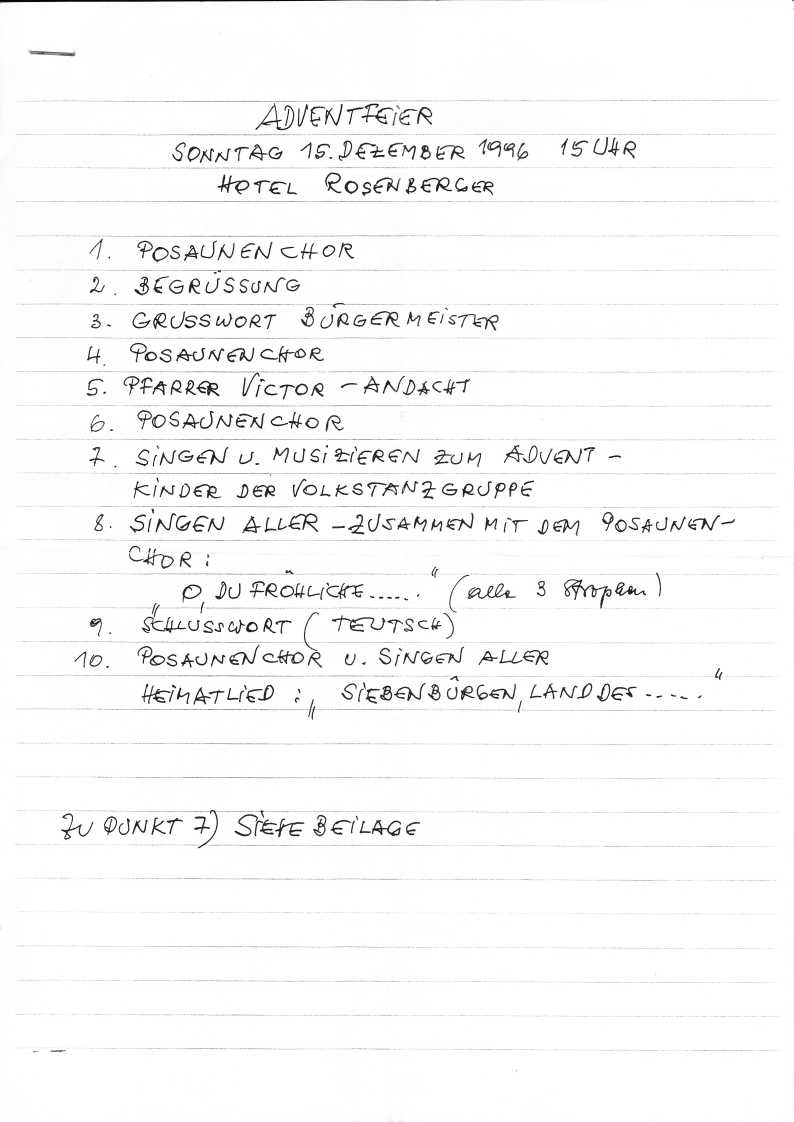 ADVENTFEIER
SONNTAG 15. DEZEMBER 1996 15 UHR
HOTEL ROSENBERGER
1. POSAUNENCHOR
2. BEGRÜSSUNG
3. GRUSSWORT BÜRGERMEISTER
4. POSAUNENCHOR
5. PFARRER VICTOR - ANDACHT
6. POSAUNENCHOR
7. SINGEN U. MUSIZIEREN ZUM ADVENT -
KINDER DER VOLKSTANZGRUPPE
8. SINGEN ALLER - ZUSAMMEN MIT DEM POSAUNEN-
CHOR:
„O, DU FRÖHLICHE......“ (alle 3 Strophen)
9. SCHLUSSWORT (TEUTSCH)
10. POSAUNENCHOR U. SINGEN ALLER
HEIMATLIED: „SIEBENBÜRGEN, LAND DES .....“
ZU PUNKT 7) SIEHE BEILAGE